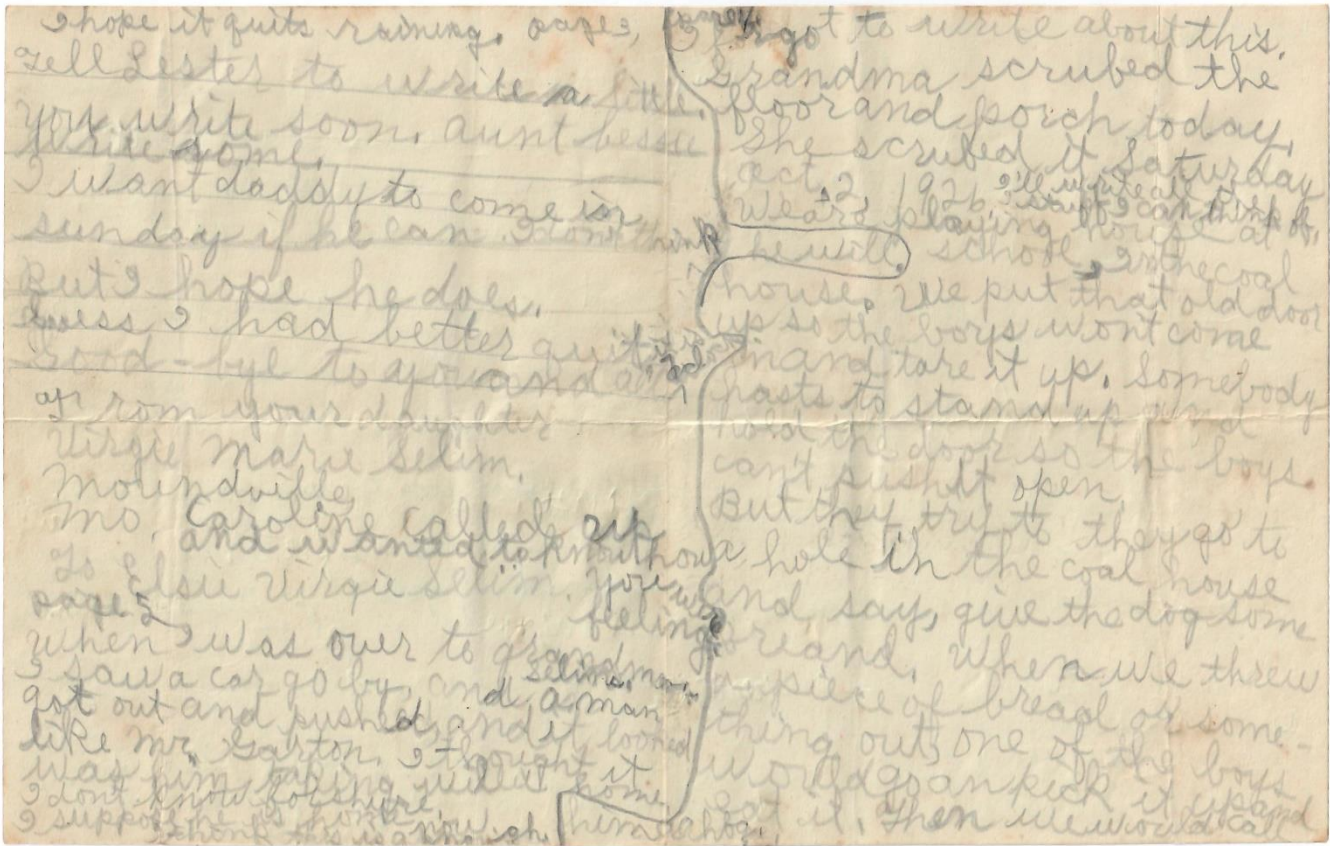 I hope it quits raining. page 3,
Tell Lester to write a little.
you write soon. aunt bessie
write some.
I want daddy to come in
sunday if he can. I don't think
he will.
But I hope he does.
Guess I had better quit
Good-bye to you and all
from your daughter
Virgie Marie Selim.
Moundville
Mo.
Caroline called up
and wanted to know how
you was
feeling
To Elsie Virgie Selim.
page 5
When I was over to grandma
Selims.
I saw a car go by, and a man
got out and pushed, and it looked
like Mr. Garton. I thought it
was him taking will home.
I dont know for shure.
I suppose he is home now.
I think this is enough.
I forgot to write about this.
Grandma scrubed the
floor and porch today.
She scrubed it Saturday
oct, 2, 1926. I'll write all the
stuff I can think of.
We are playing house at
school in the coal
house. We put that old door
up so the boys wont come
in and tare it up. Somebody
hasts to stand up and
hold the door so the boys.
can't push it open
But they try to they go to
a hole in the coal house
and say, give the dog some
breand. When we threw
a piece of bread or some-
thing out, one of the boys
would go an pick it up and
eat it. Then we would call
him a hog.